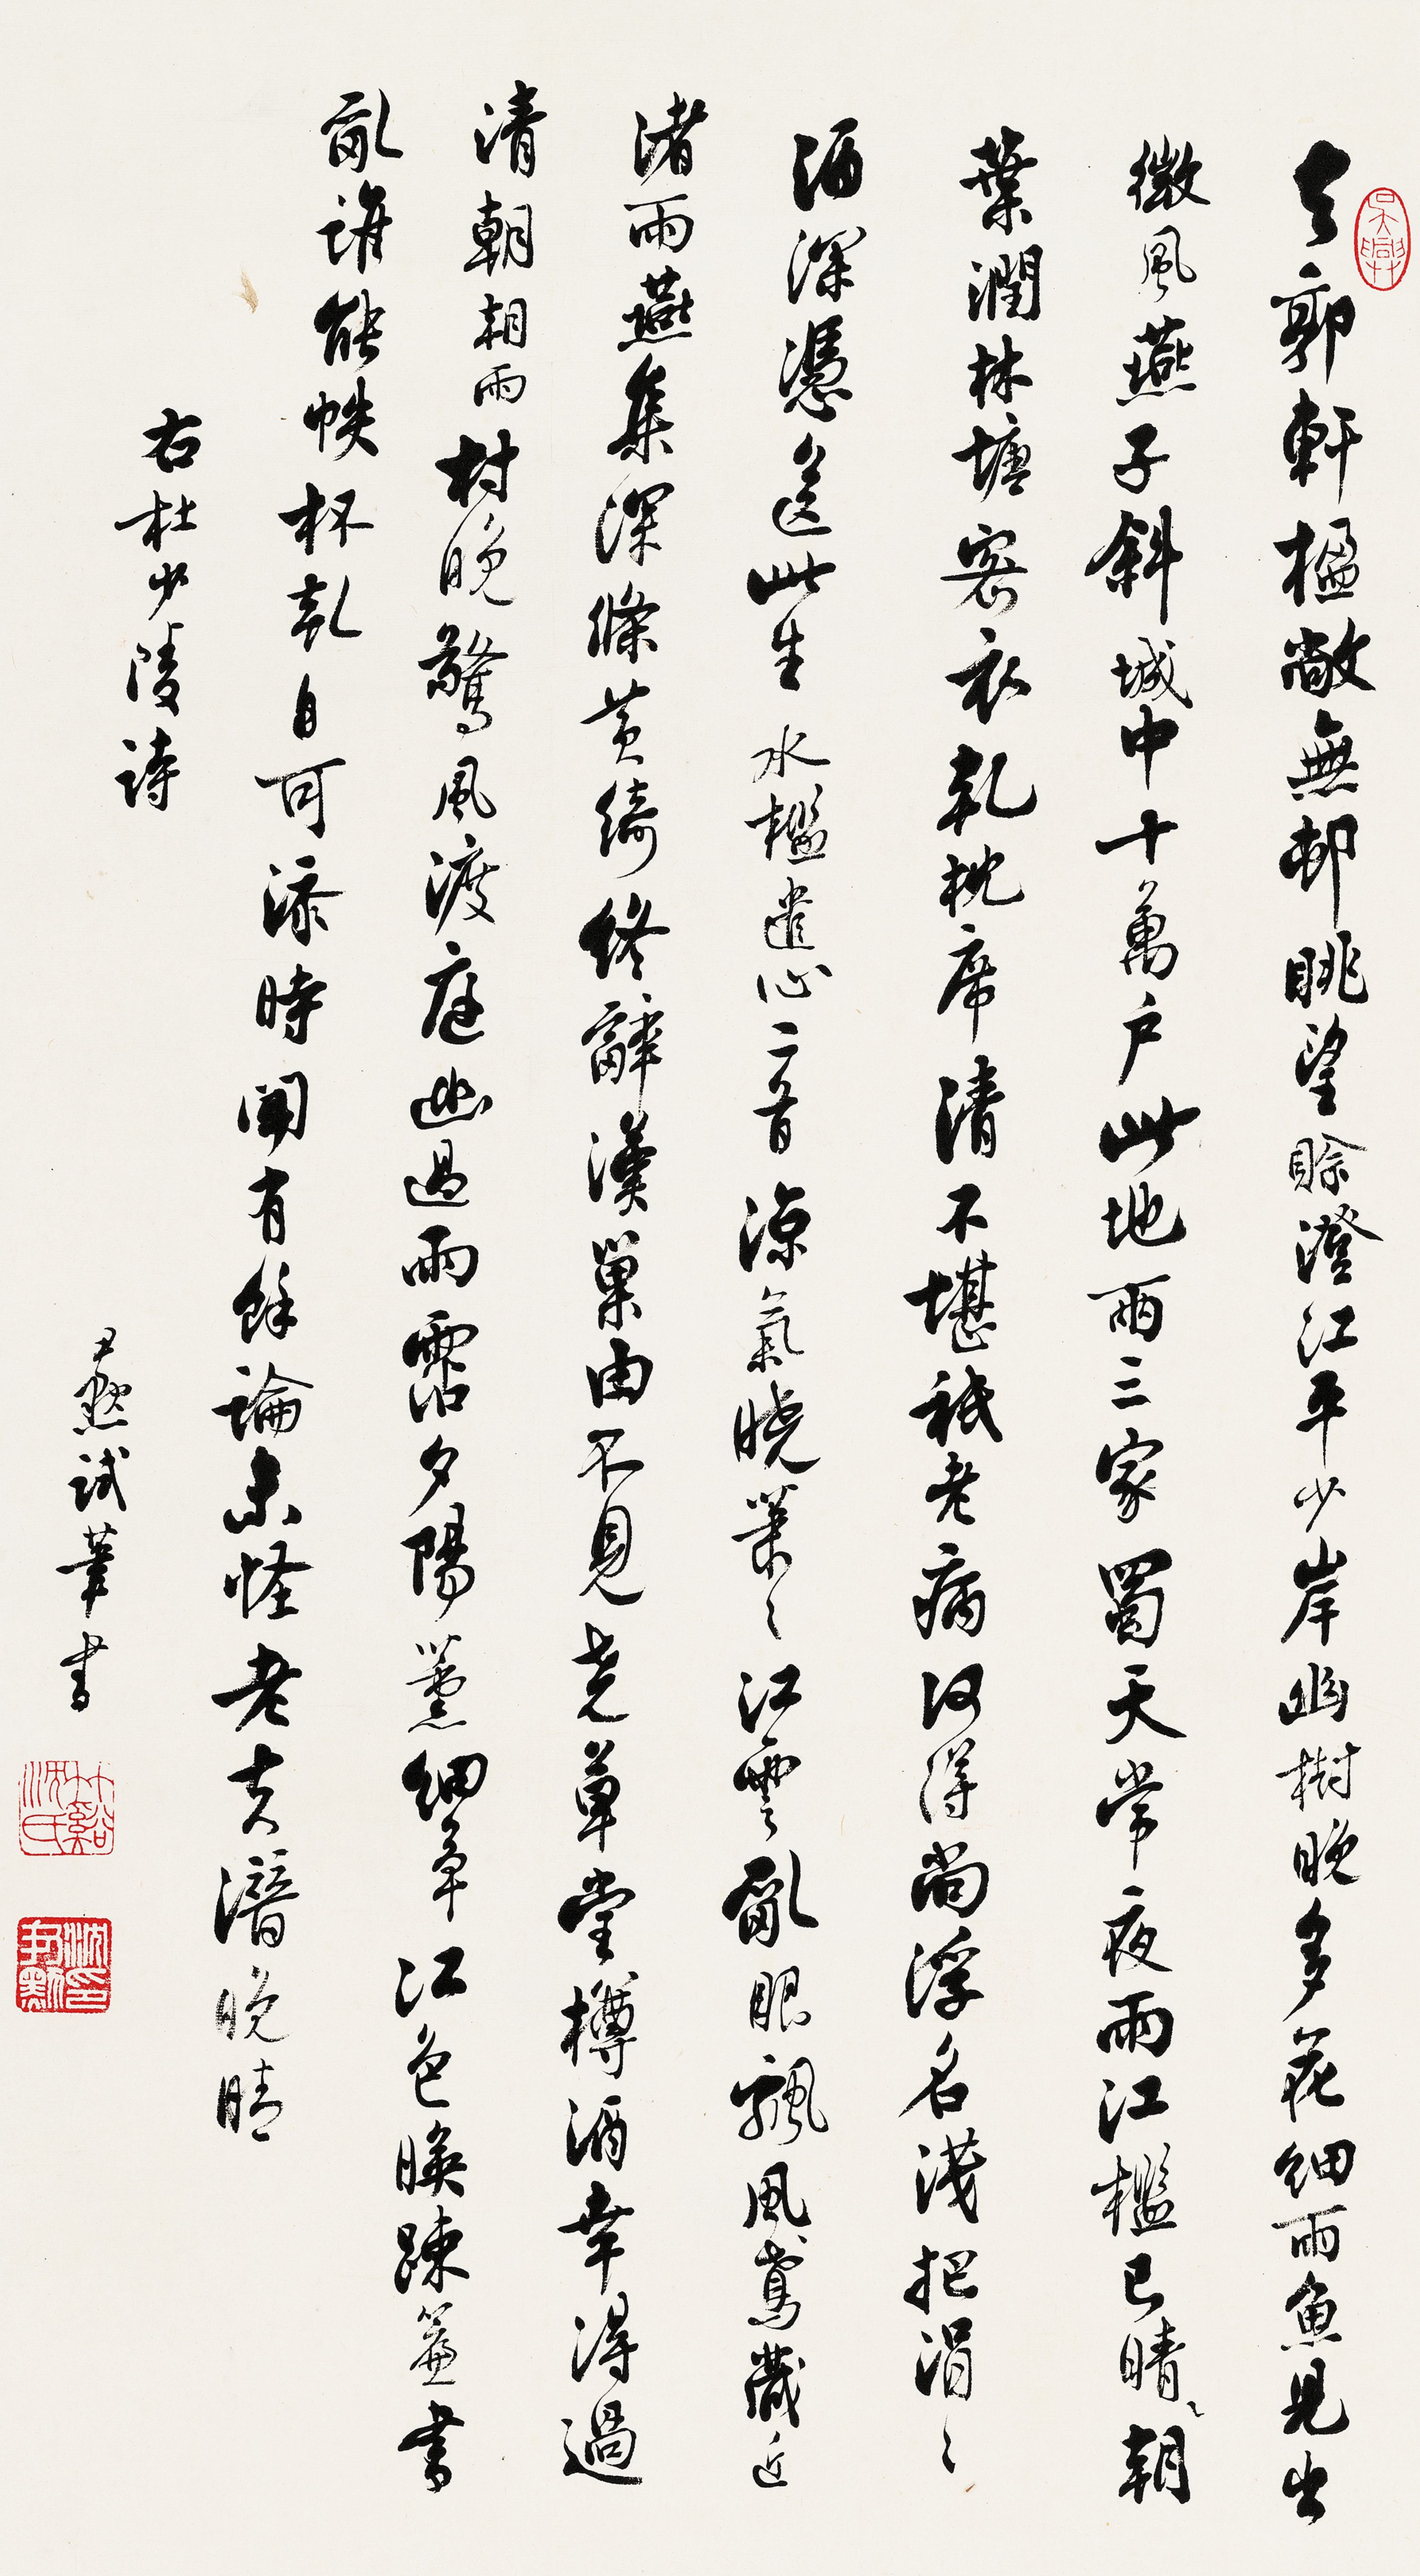 去郭軒楹敞無邨眺望賒澄江平少岸幽樹晚多花細雨魚見出
微風燕子斜城中十萬戶此地兩三家蜀天常夜雨江檻已晴〻朝
葉潤林塘密衣乾枕席清不堪祗老病何得尚浮名淺把涓〻
酒深憑送此生水檻遣心二首涼氣曉蕭〻江雲亂眼飄風鴛藏近
渚雨燕集深條黃綺終辭漢巢由不見堯草堂樽酒幸得過
清朝朝雨村晚驚風渡庭幽過雨霑夕陽薰細草江色映疎簾書
亂誰能帙杯乾自可添時聞有餘論未怪老夫潛晚晴
右杜少陵詩
尹默試筆書
吳興
竹谿沈氏
沈尹默印